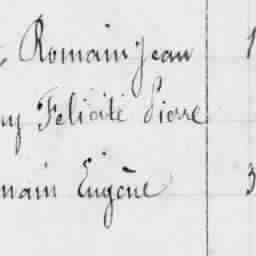 Romain Jean 1
ny Felicité Pierre
main Eugène 3